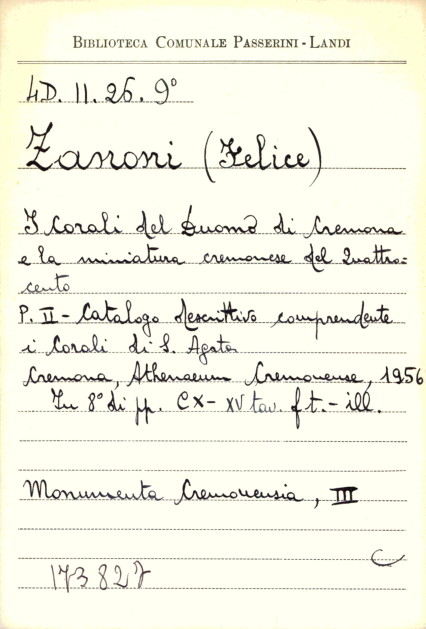 BIBLIOTECA COMUNALE PASSERINI - LANDI
4D. II. 26. 9°
Zanoni (Felice)
I Corali del Duomo di Cremona
e la miniatura cremonese del Quattro=
cento
P. II - Catalogo descrittivo comprendente
i Corali di S. Agata
Cremona, Athenaeum Cremonense, 1956
In 8° di pp. CX - XV tav. f. t. - ill.
Monumenta Cremonensia, III
C
173827